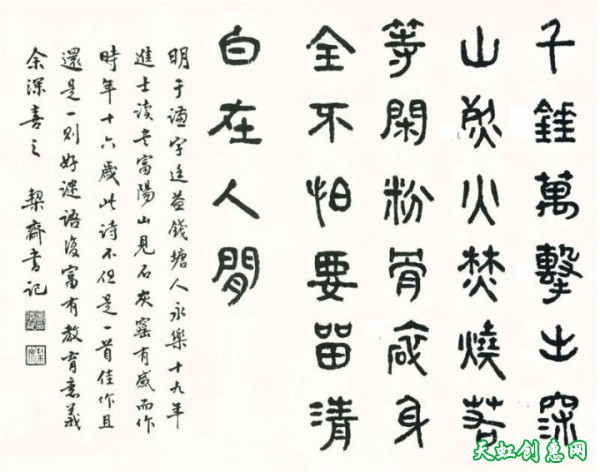 千錘萬擊出深
山烈火焚燒若
等閑粉骨碎身
全不怕要留清
白在人間
明于謙字廷益錢塘人永樂十九年
進士讀書富陽山見石灰窰有感而作
時年十六歲此詩不但是一首佳作且
還是一則好謎語復富有教育意義
余深喜之 栔齋書記
天虹创意网